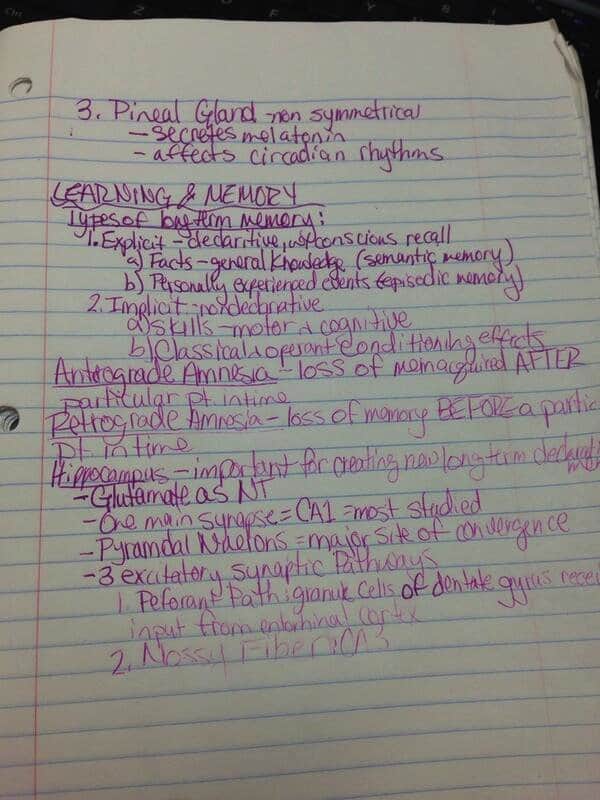 3. Pineal Gland - non symmetrical
- secretes melatonin
- affects circadian rhythms
LEARNING & MEMORY
Types of long term memory:
1. Explicit - declaritive, w/ conscious recall
a) Facts - general knowledge (semantic memory)
b) Personally experienced events (episodic memory)
2. Implicit - nondeclarative
a) skills - motor & cognitive
b) Classical & operant conditioning effects
Anterograde Amnesia - loss of mem acquired AFTER
particular pt. in time
Retrograde Amnesia - loss of memory BEFORE a partic
pt in time
Hippocampus - important for creating new long term
- Glutamate as NT
- One main synapse = CA1 = most studied
- Pyramdal Nuerons = major site of convergence
- 3 excitatory synaptic Pathways
1. Peforant Path: granule cells of dentate gyrus recei
input from entorhinal cortx
2. Mossy Fiber: CA3